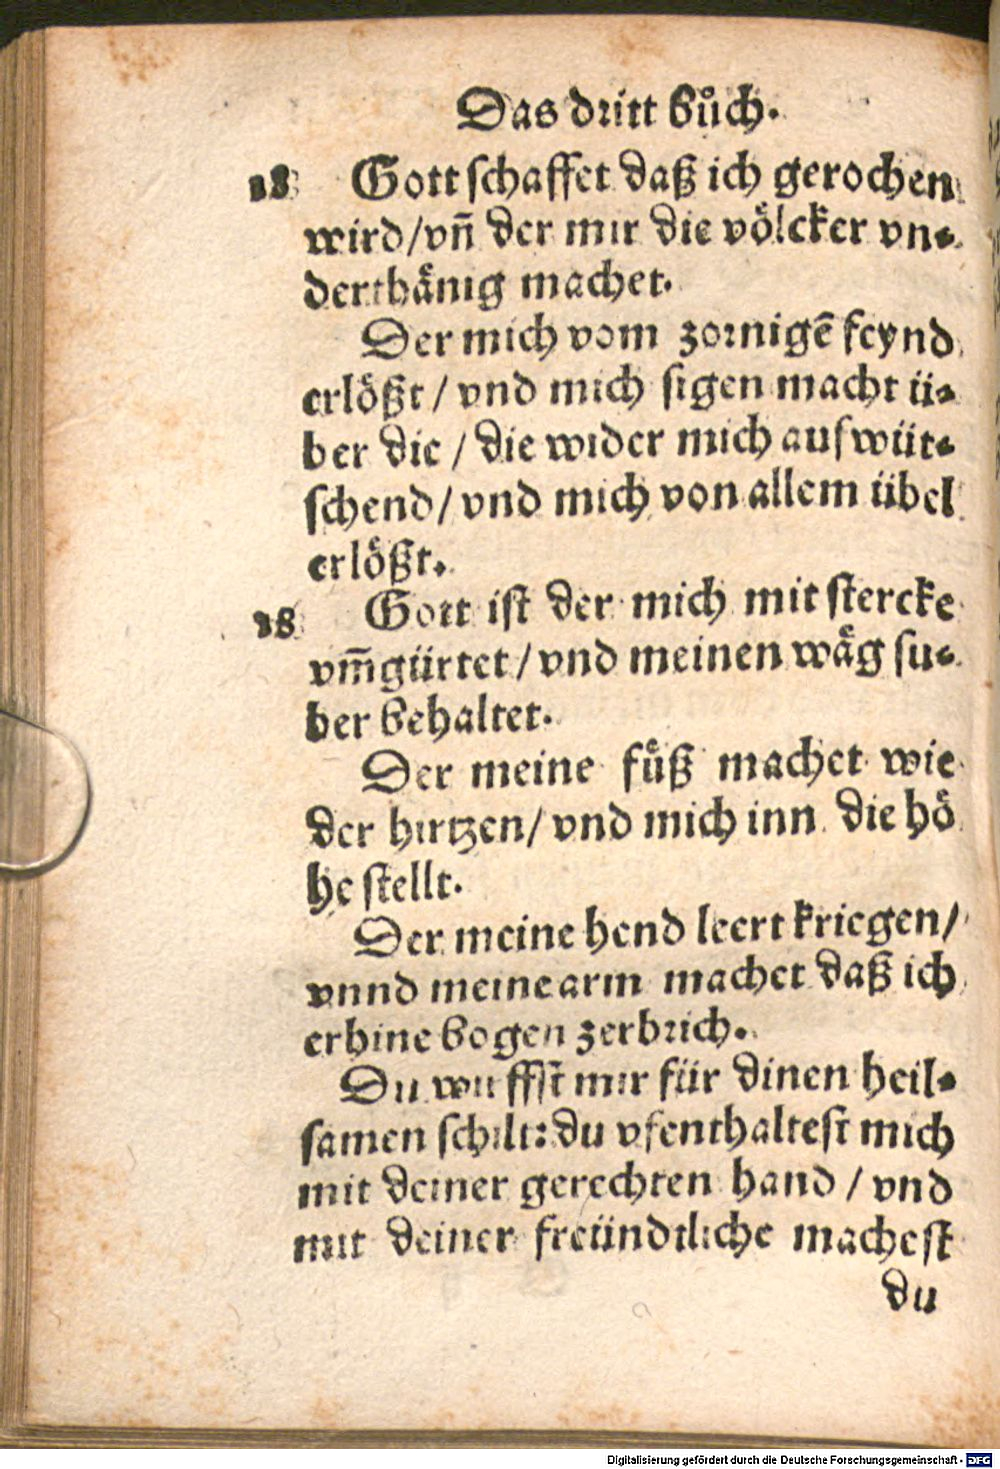 Das dritt Bůch.
18 Gott schaffet daß ich gerochen
wird/vñ der mir die völcker vn⸗
derthånig machet.
Der mich vom zornigẽ feynd
erlößt / vnd mich sigen macht ü⸗
ber die / die wider mich auf wüt⸗
schend/ vnd mich von allem übel
erlößt.
18 Gott ist der mich mit stercke
vm̃gürtet / vnd meinen wåg su⸗
ber behaltet.
Der meine fůß machet wie
der hirtzen/ vnd mich inn die hö
he stellt.
Der meine hend leert kriegen/
vnnd meine arm machet daß ich
erhine bogen zerbrich.
Du wu ffst mir für dinen heil⸗
samen schilt: du vfenthaltest mich
mit deiner gerechten hand / vnd
mit deiner freündtliche machest
du
Digitalisierung gefördert durch die Deutsche Forschungsgemeinschaft - DFG